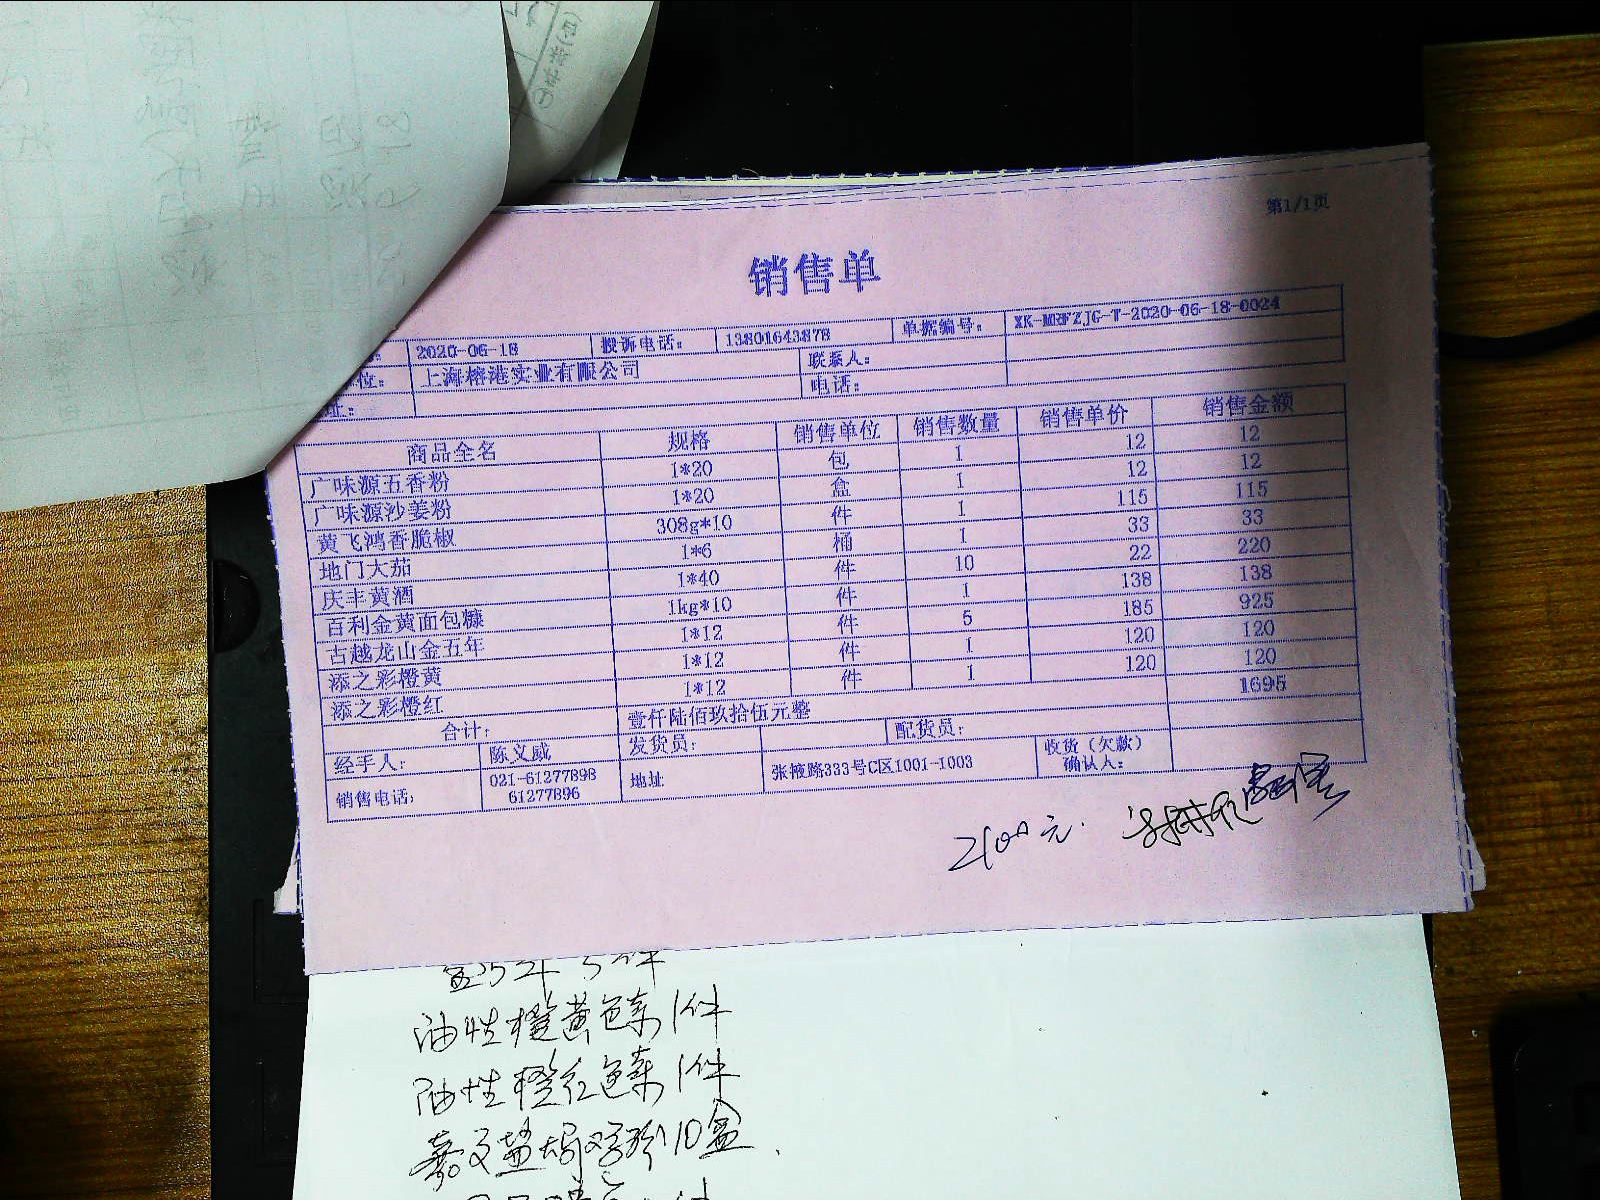 第1/1页
销售单
2020-06-18 投诉电话： 13801643878 单据编号： XK-MRFZJG-T-2020-06-18-0024
位： 上海榕港实业有限公司 联系人：
址： 电话：
商品全名 规格 销售单位 销售数量 销售单价 销售金额
广味源五香粉 1*20 包 1 12 12
广味源沙姜粉 1*20 盒 1 12 12
黄飞鸿香脆椒 308g*10 件 1 115 115
地门大茄 1*6 桶 1 33 33
庆丰黄酒 1*40 件 10 22 220
百利金黄面包糠 1kg*10 件 1 138 138
古越龙山金五年 1*12 件 5 185 925
添之彩橙黄 1*12 件 1 120 120
添之彩橙红 1*12 件 1 120 120
合计： 壹仟陆佰玖拾伍元整 1695
经手人： 陈义威 发货员： 配货员：
销售电话： 021-61277898 61277896 地址 张掖路333号C区1001-1003 收货（欠款）确认人：
2100元.
油性橙黄色素1件
油性橙红色素1件
10盒